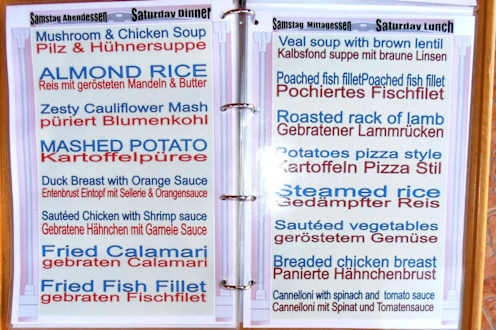 Samstag Abendessen Saturday Dinner
Mushroom & Chicken Soup
Pilz & Hühnersuppe
ALMOND RICE
Reis mit gerösteten Mandeln & Butter
Zesty Cauliflower Mash
püriert Blumenkohl
MASHED POTATO
Kartoffelpüree
Duck Breast with Orange Sauce
Entenbrust Eintopf mit Sellerie & Orangensauce
Sautéed Chicken with Shrimp sauce
Gebratene Hähnchen mit Garnele Sauce
Fried Calamari
gebraten Calamari
Fried Fish Fillet
gebraten Fischfilet
Samstag Mittagessen Saturday Lunch
Veal soup with brown lentil
Kalbsfond suppe mit braune Linsen
Poached fish filletPoached fish fillet
Pochiertes Fischfilet
Roasted rack of lamb
Gebratener Lammrücken
Potatoes pizza style
Kartoffeln Pizza Stil
Steamed rice
Gedämpfter Reis
Sautéed vegetables
geröstetem Gemüse
Breaded chicken breast
Panierte Hähnchenbrust
Cannelloni with spinach and tomato sauce
Cannelloni mit Spinat und Tomatensauce